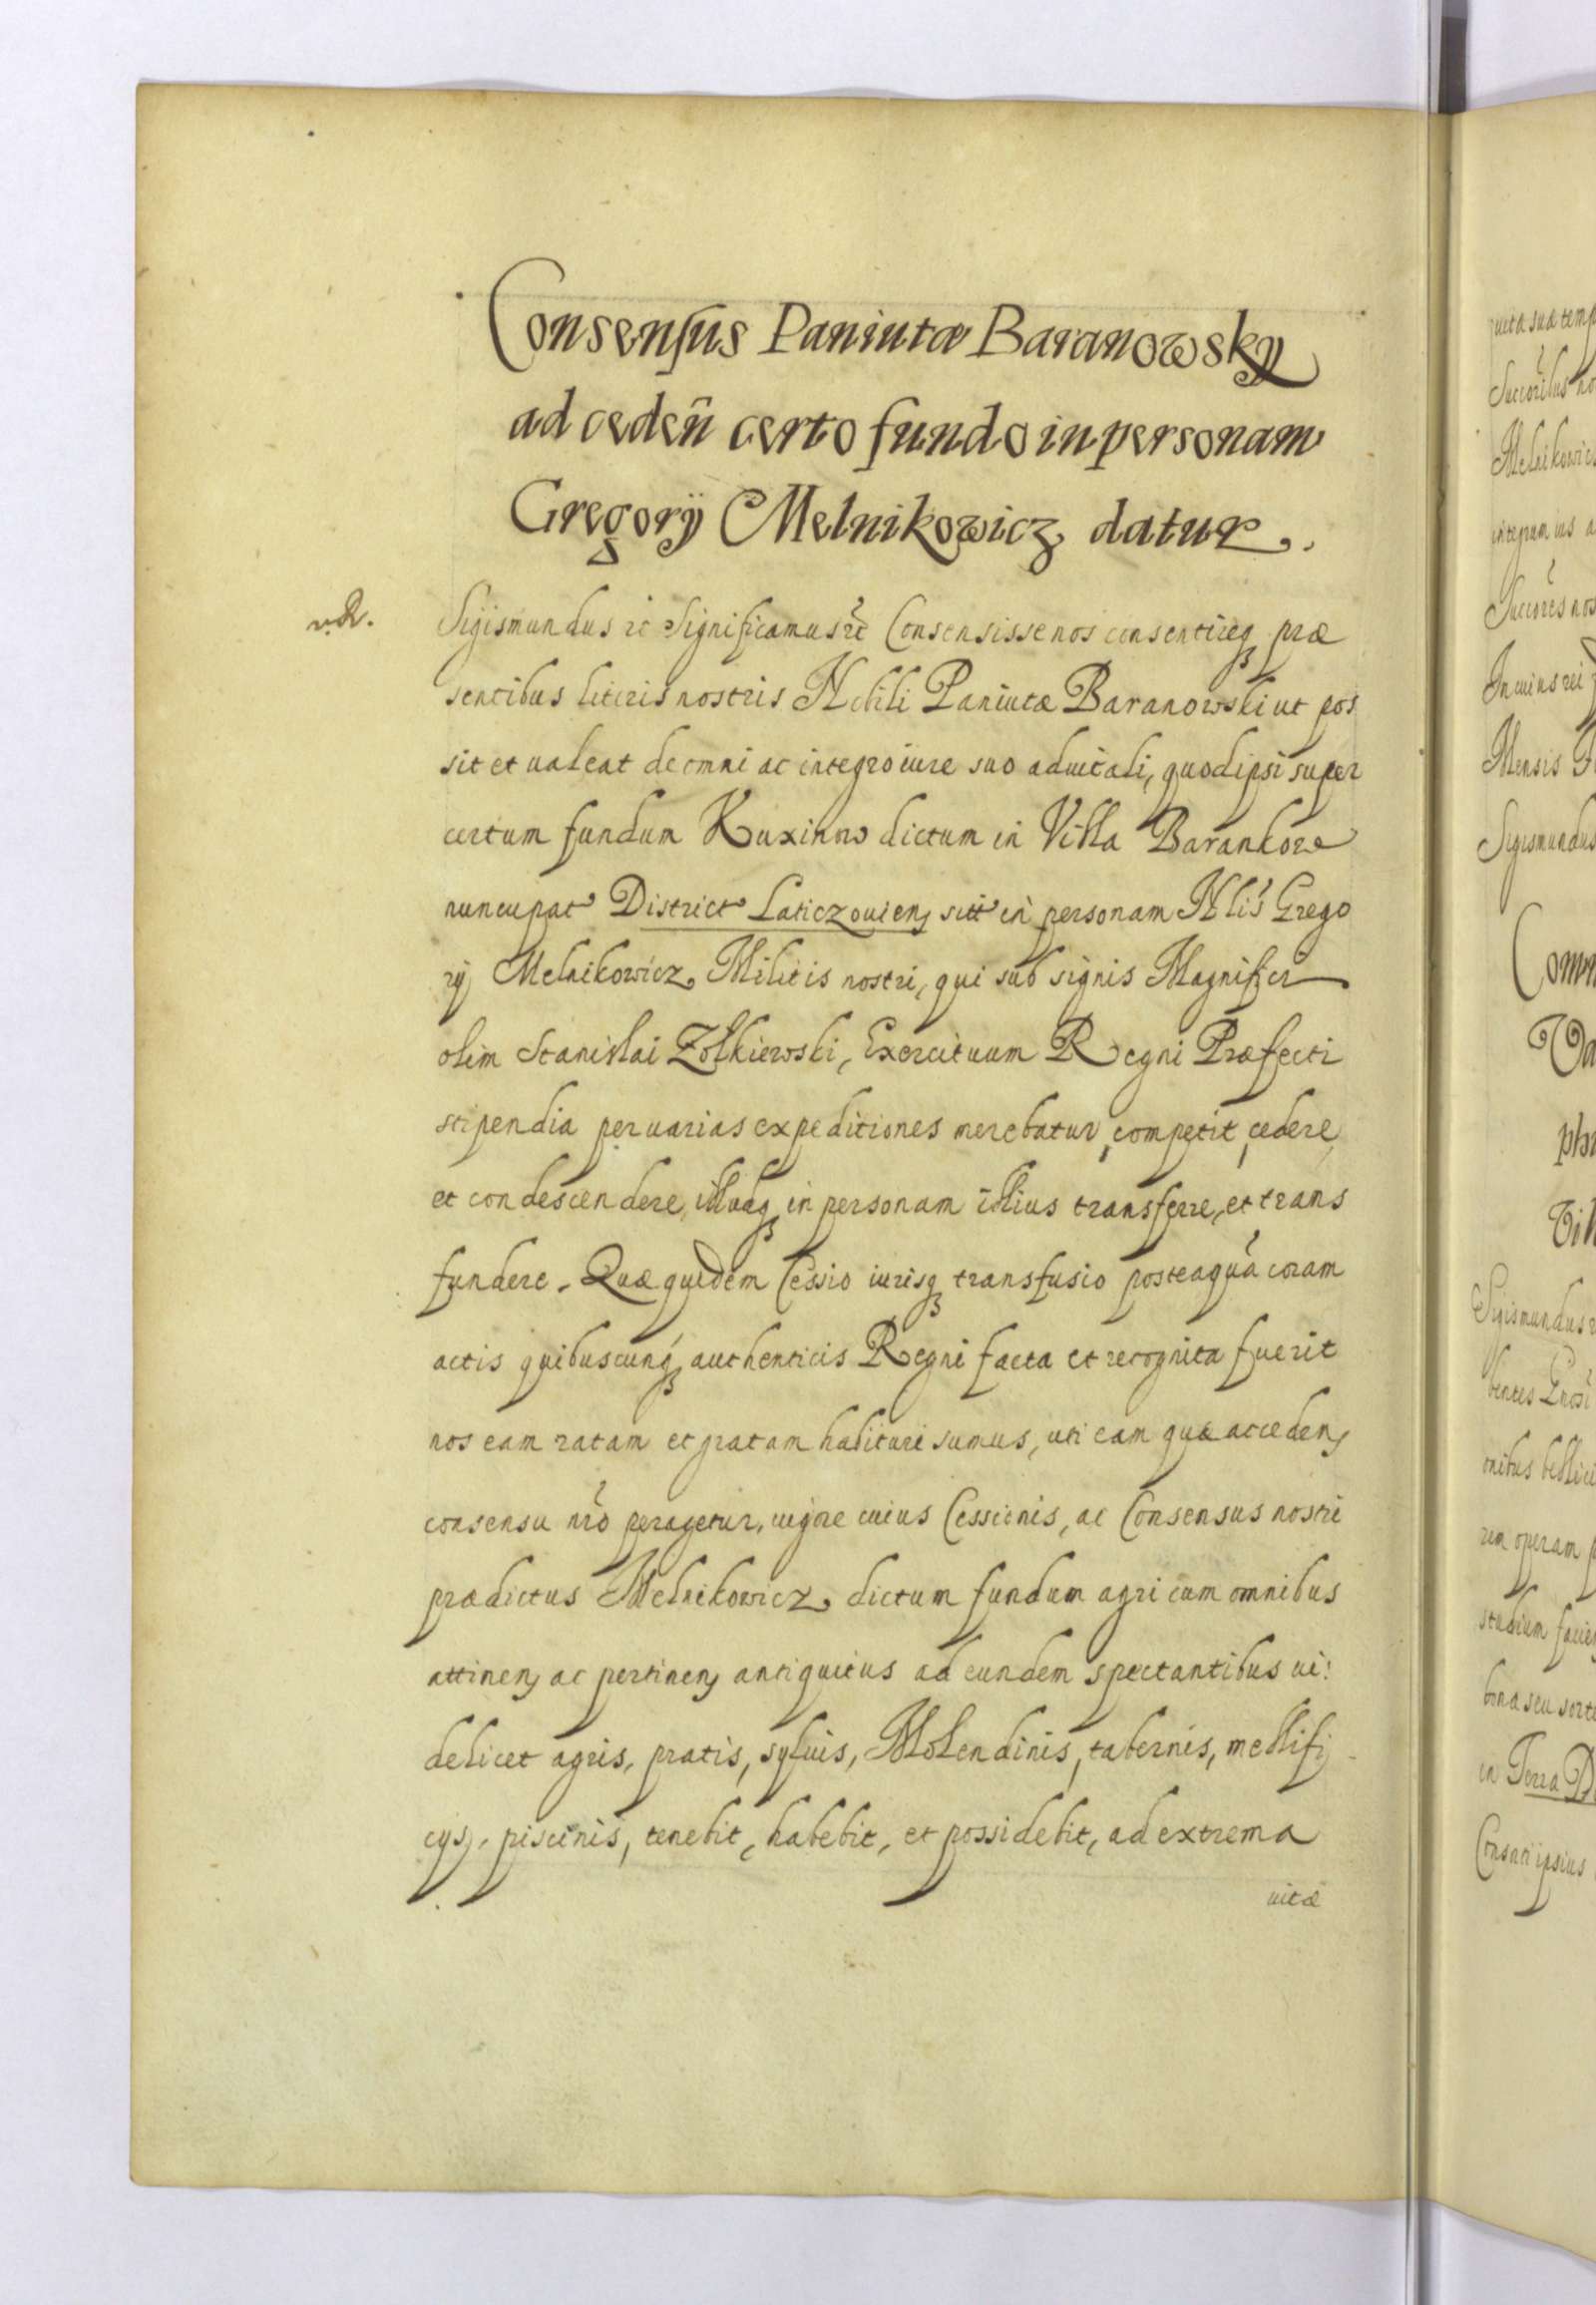 Consensus Paniutæ Baranowsky
ad cedeñ certo fundo in personam
Gregorÿ Melnikowicz datur.
Sigismundus etc Significamus etc Consensisse nos consentireq præ
sentibus literis nostris Nobili Paniutæ Baranowski ut pos
sit et ualeat de omni ac integro iure suo aduitali, quod ipsi super
certum fundum Kuxinno dictum in Villa Barankore
nuncupat District Laticzouien sitt in personam Nlis Grego
rÿ Melnikowicz Militis nostri, qui sub signis Magnifici
olim Stanislai Zołkiewski, Exercituum Regni Præfecti
stipendia per uarias expeditiones merebatur, competit, cedere,
et condescendere, illudq in personam illius transferre, et trans
fundere. Quæ quidem Cessio iurisq transfusio posteaquã coram
actis quibuscunq authenticis Regni facta et recognita fuerit
nos eam ratam et gratam habituri sumus, uti eam quæ acceden
consensu nro peragetur. uigore cuius Cessionis, ac Consensus nostri
prædictus Melnikowicz dictum fundum agri cum omnibus
attinen ac pertinen antiquitus ad eundem spectantibus ui:
delicet agris, pratis, syluis, Molendinis, tabernis, mellifi
cys, piscinis, tenebit, habebit, et possidebit, ad extrema
uitæ
uitæ suæ temp
Succoribus no
Melnikowicz
integrum ius a
Succores nos
In cuius rei
Mensis
Sigismundus
Sigismundus
onibus bellici
rem operam p
studium
bona seu sorte
in Terra D
ipsius